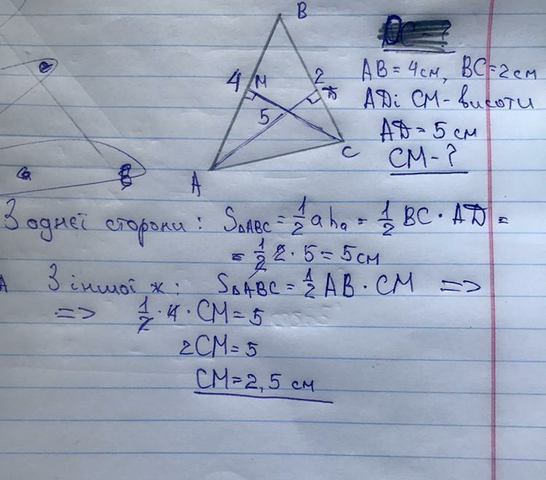 B
4 M 2 D
5
C
A
AB = 4 см, BC = 2 см
AD і CM - висоти
AD = 5 см
CM - ?
З однєї сторони: S△ABC = 1/2 a hₐ = 1/2 BC · AD =
= 1/2 2 · 5 = 5 см
З іншої ж: S△ABC = 1/2 AB · CM =>
=> 1/2 · 4 · CM = 5
2CM = 5
CM = 2,5 см